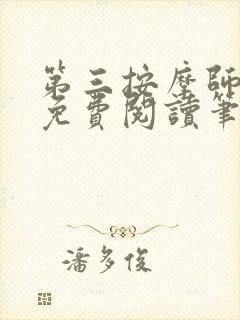 第三按摩師
免費閱讀筆
潘多俊